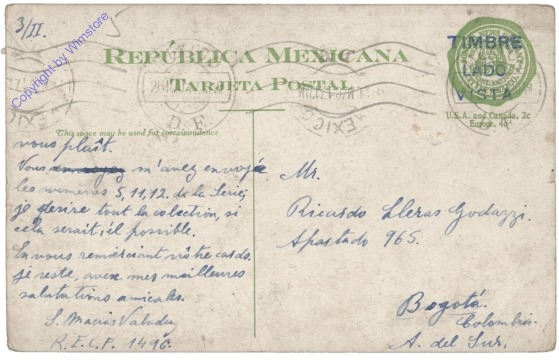 3/II.
Copyright by Wimstore
REPÚBLICA MEXICANA
TARJETA POSTAL
TIMBRE
LADO
VISTA
U.S.A. and Canada, 2c
Europe, 4c
MEXICO
D. F.
This space may be used for correspondence
vous plaît.
Vous m'avez envoyé
les numeros 5, 11, 12. de la Serie;
je desire tout la colection, si
cela serait, il possible.
En vous remerciant vôtre cards.
je reste, avec mes meilleures
salutations amicales.
S. Macias Valadez
R.E.C.P. 1496.
Mr.
Ricardo Lleras Godazzi.
Apartado 965.
Bogotá.
Colombia.
A. del Sur.